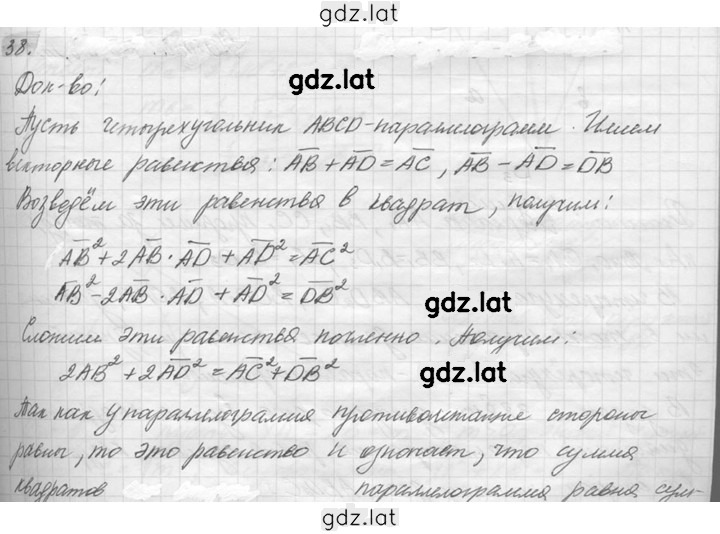 gdz.lat
38.
gdz.lat
Док-во:
Пусть четырехугольник ABCD-параллелограмм. Имеем
векторные равенства: A̅B̅ + A̅D̅ = A̅C̅, A̅B̅ - A̅D̅ = D̅B̅
Возведём эти равенства в квадрат, получим:
A̅B̅² + 2A̅B̅ · A̅D̅ + A̅D̅² = A̅C̅²
A̅B̅² - 2A̅B̅ · A̅D̅ + A̅D̅² = D̅B̅²
gdz.lat
Сложим эти равенства почленно. Получим:
2AB² + 2A̅D̅² = A̅C̅² + D̅B̅²
gdz.lat
Так как у параллелограмма противолежащие стороны
равны, то это равенство и означает, что сумма
квадратов параллелограмма равна сум-
gdz.lat